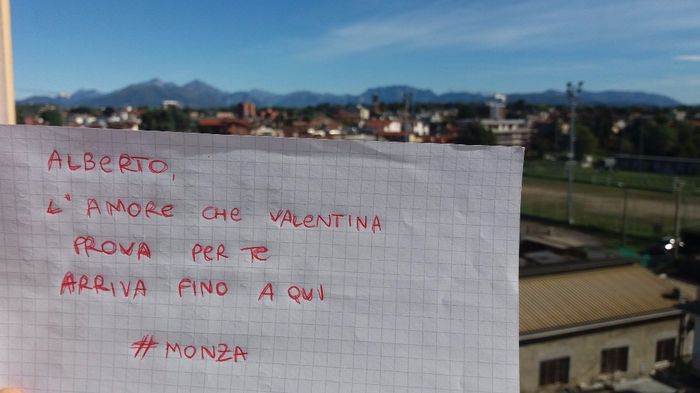 ALBERTO,
L'AMORE CHE VALENTINA
PROVA PER TE
ARRIVA FINO A QUI
#MONZA